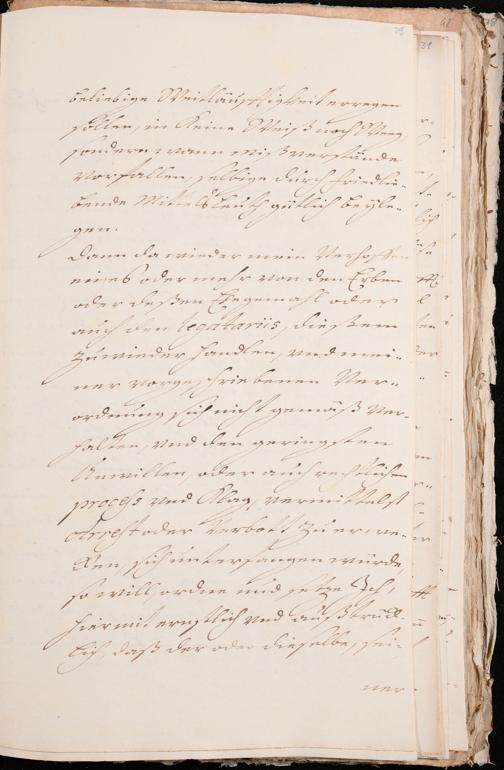 beliebige Weitläufftigkeit erregen
sollen, in keine Weiß noch Weeg,
sondern wann Mißverstände
vorfallen, selbige durch friedlie-
bende Mittels Leuth gütlich beyle-
gen.
Dann da wieder mein Verhoffen
eines oder mehr von den Erben
oder deßen Ehegemahl oder
auch den legatariis, dießem
zuwieder handlen, und mei-
ner vorgeschriebenen Ver-
ordnung sich nicht gemäß ver-
halten, und den geringsten
Unwillen, oder auch rechtlichen
process und Klag, vermittelst
Arrest oder Verbott zu erwe-
cken, sich unterfangen würde,
so will, ordne und setze Ich,
hiermit ernstlich und außtrück-
lich, daß der oder dieselbe, sei-
ner